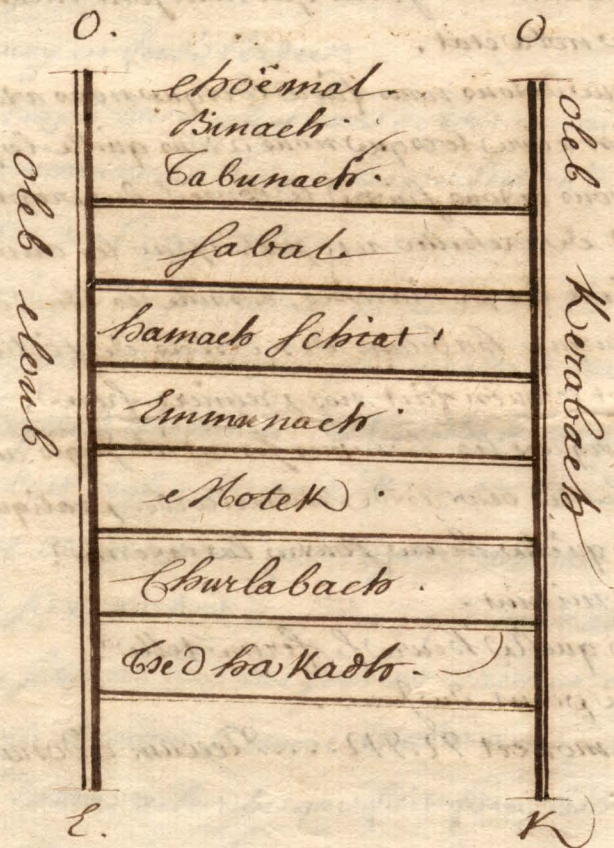 O. O
Choëmal.
Binach.
Tabunach.
Sabal.
hamach Schiat
Emmunach.
Motek.
Churlabach.
Tsed ha Kadh.
oleb Eloub
oleb Kerabach
E. K